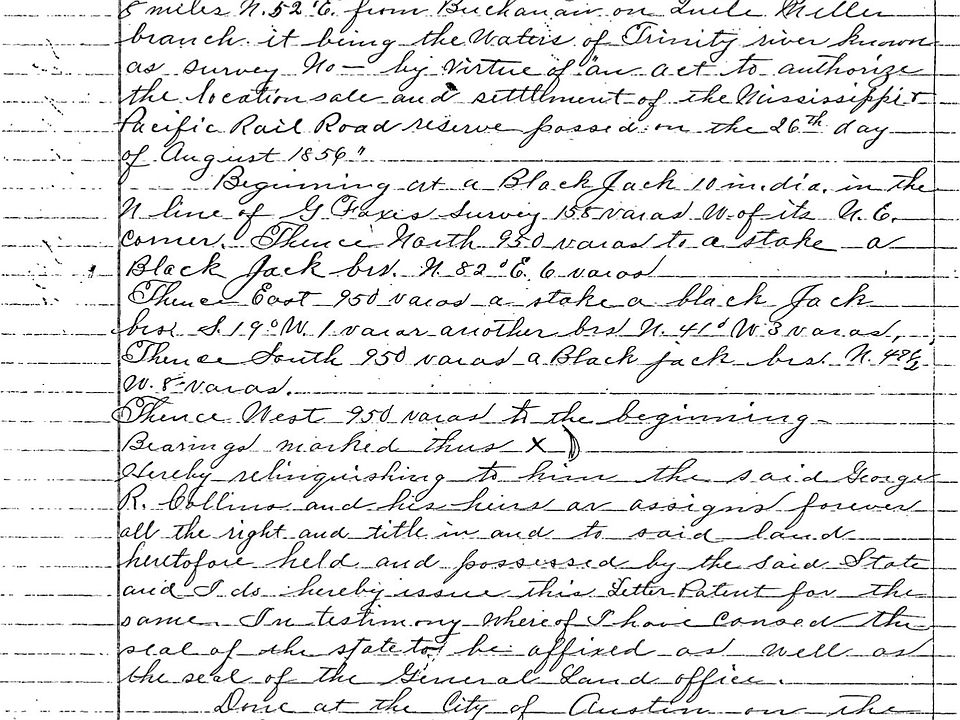 8 miles N. 52°E. from Buchanan on Miller
branch it being the Waters of Trinity river known
as survey No — by Virtue of "an act to authorize
the location sale and settlment of the Mississippi &
Pacific Rail Road reserve passed on the 26th day
of August 1856"
Beginning at a Black Jack 10 in. dia. in the
N line of G survey 158 varas W. of its N. E.
corner. Thence North 950 varas to a stake a
Black Jack brs. N. 82°E. 6 varas
Thence East 950 varas a stake a black Jack
brs. S. 19° W. 1 varar another brs N. 41° W 3 varas,
Thence South 950 varas a Black jack brs. N.
W. 8 varas.
Thence West 950 varas to the beginning
Bearings marked thus X
Hereby relinquishing to him the said George
R. Collins and his heirs or assigns forever
all the right and title in and to said land
heretofore held and possessed by the said State
and I do hereby issue this Letter Patent for the
same. In testimony whereof I have caused the
seal of the state to be affixed as well as
the seal of the General Land office.
Done at the City of Austin on the